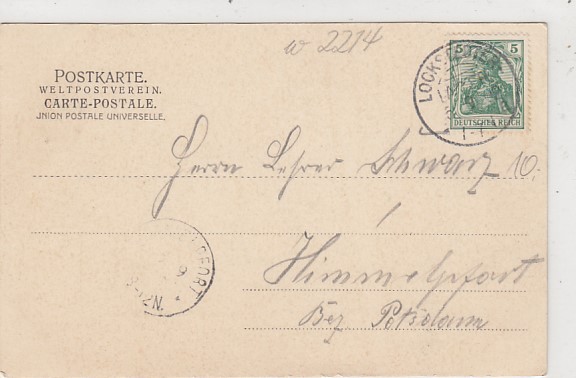 w 2214
POSTKARTE.
WELTPOSTVEREIN.
CARTE-POSTALE.
UNION POSTALE UNIVERSELLE.
5
DEUTSCHES REICH
Herrn Lehrer Schwarz
Himmelpfort
Bez Potsdam